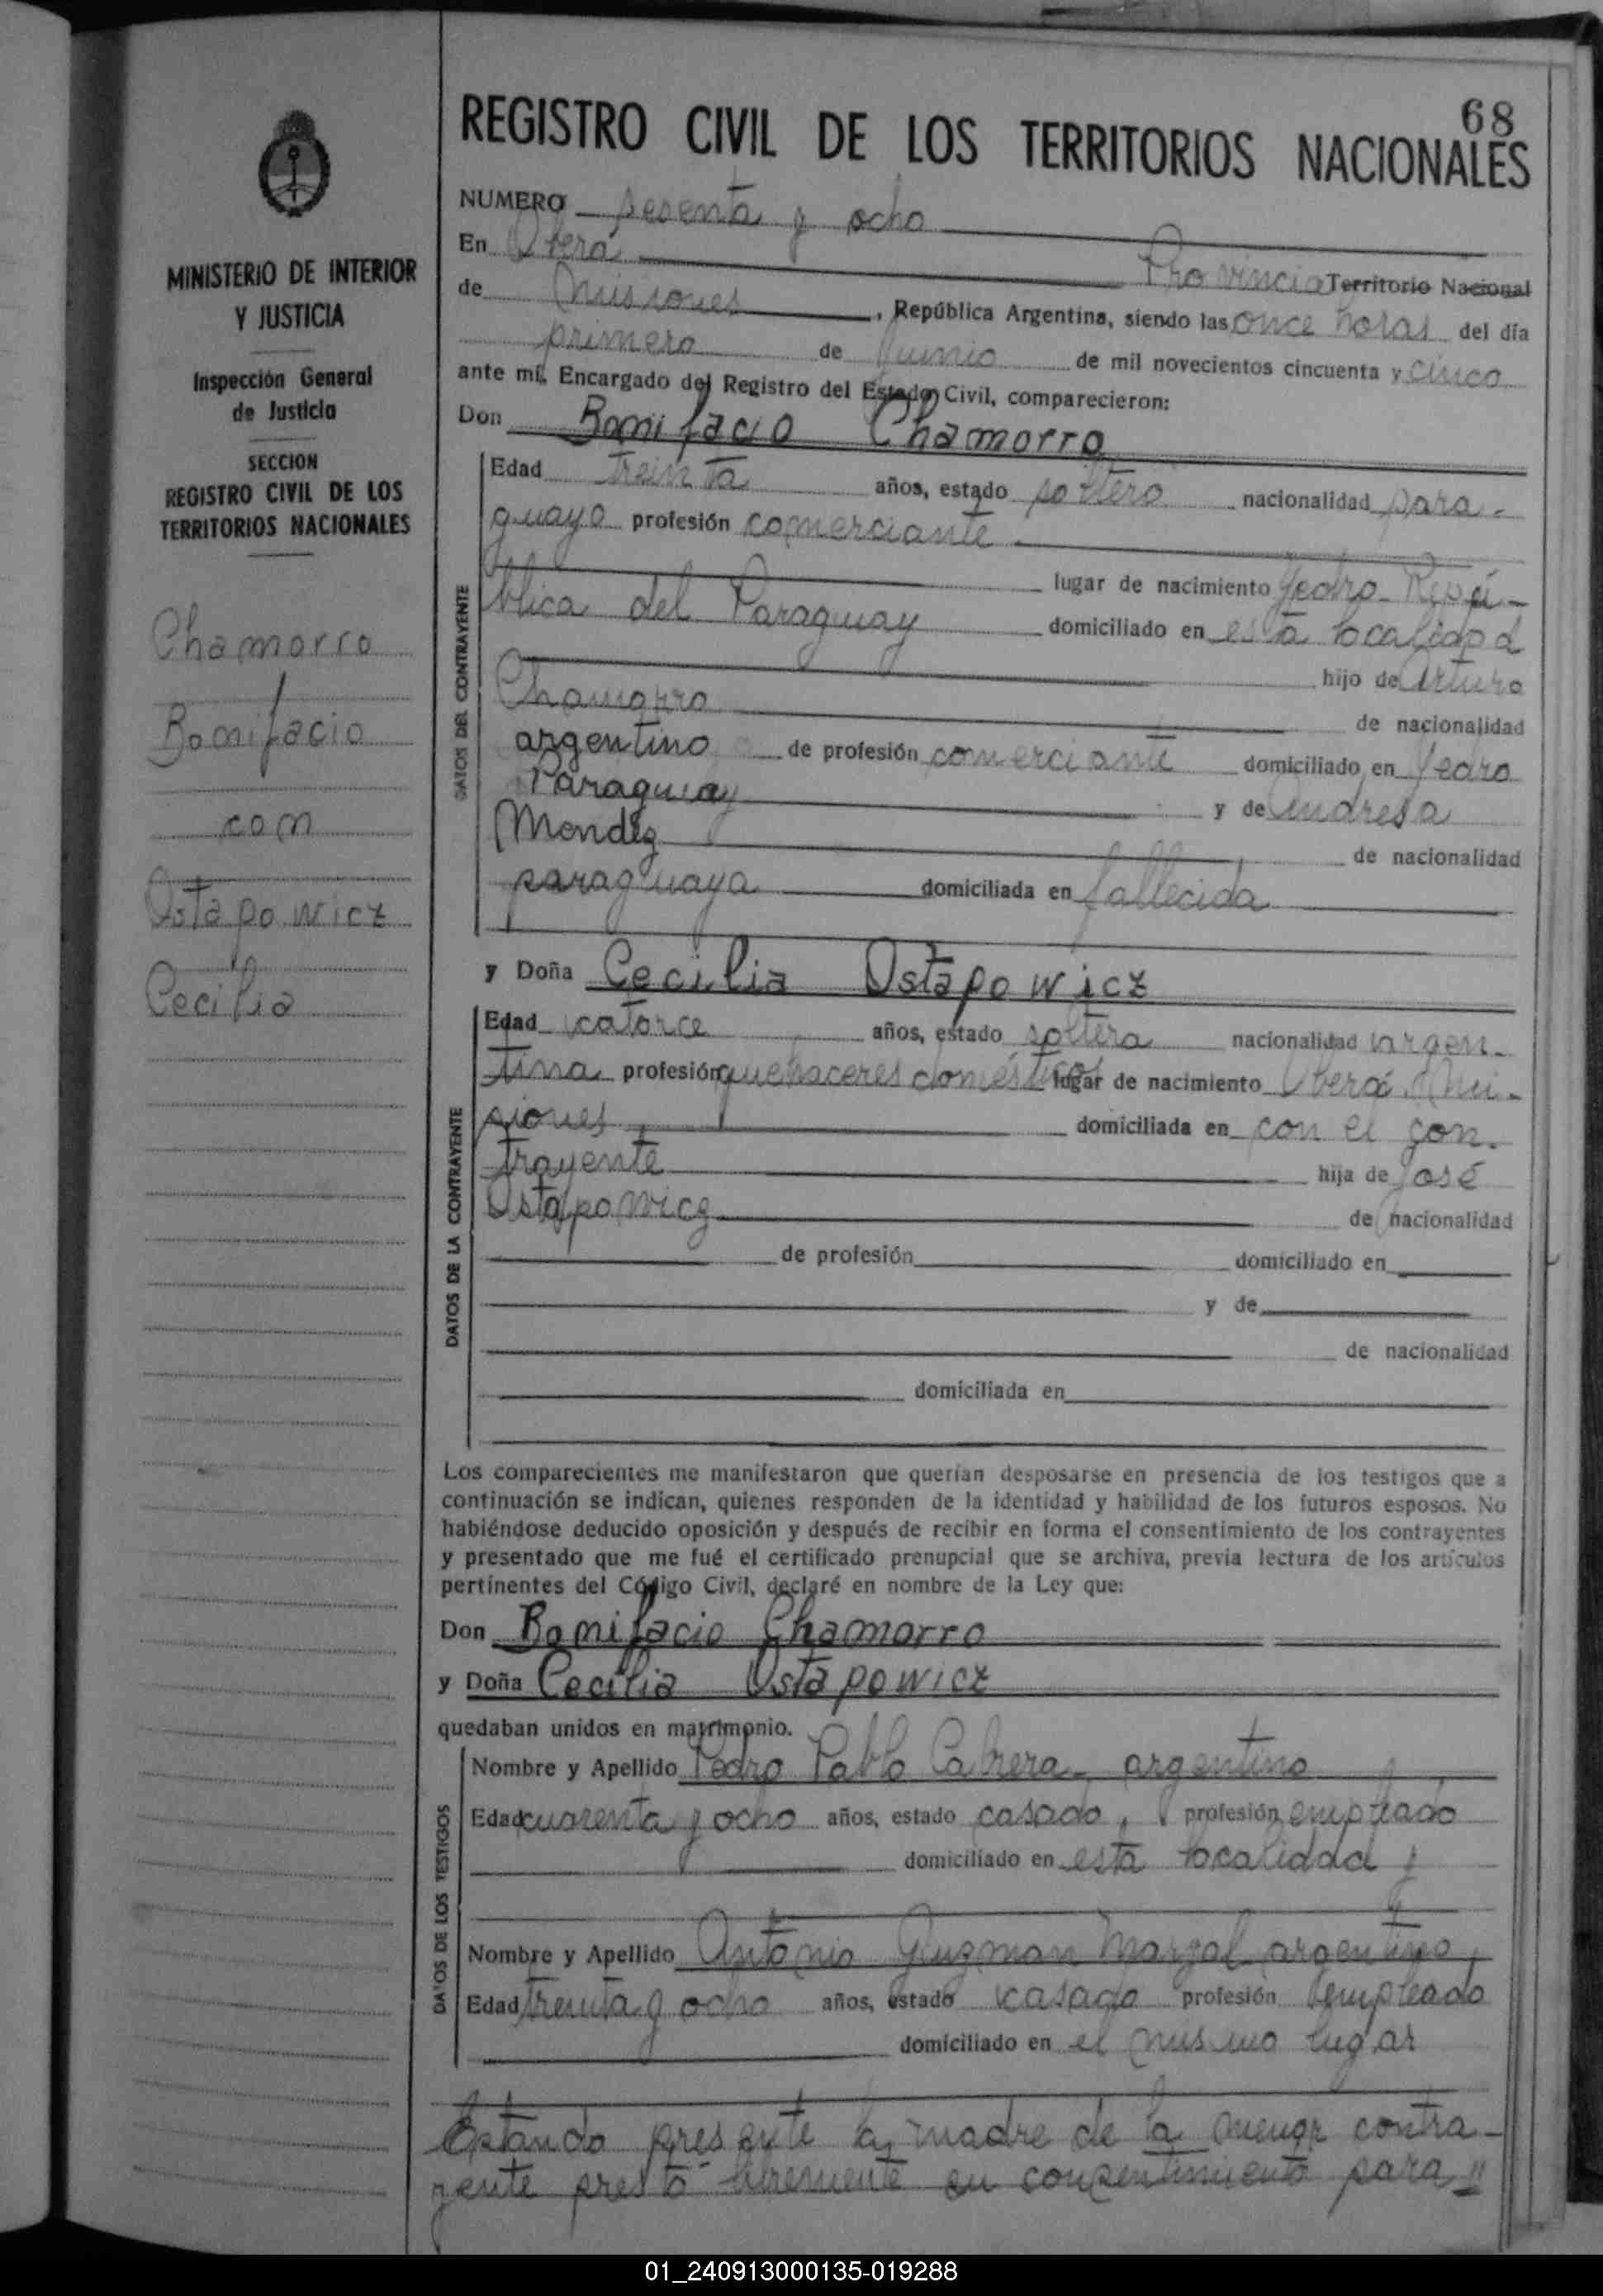 68
REGISTRO CIVIL DE LOS TERRITORIOS NACIONALES
NUMERO sesenta y ocho
En Oberá Provincia Territorio Nacional
de Misiones, República Argentina, siendo las once horas del día
primero de Junio de mil novecientos cincuenta y cinco
ante mí, Encargado del Registro del Estado Civil, comparecieron:
Don Bonifacio Chamorro
Edad treinta años, estado soltero nacionalidad para-
guayo profesión comerciante
lugar de nacimiento Yedro- Repú-
blica del Paraguay domiciliado en esta localidad
hijo de Arturo
Chamorro de nacionalidad
argentino de profesión comerciante domiciliado en Yedro
Paraguay y de Andresa
Mendez de nacionalidad
paraguaya domiciliada en fallecida
y Doña Cecilia Ostapowicz
Edad catorce años, estado soltera nacionalidad argen-
tina profesión quehaceres domésticos lugar de nacimiento Oberá Mi-
siones, domiciliada en con el con-
trayente hija de José
Ostapowicz de nacionalidad
de profesión domiciliado en
y de
de nacionalidad
domiciliada en
Los comparecientes me manifestaron que querían desposarse en presencia de los testigos que a
continuación se indican, quienes responden de la identidad y habilidad de los futuros esposos. No
habiéndose deducido oposición y después de recibir en forma el consentimiento de los contrayentes
y presentado que me fué el certificado prenupcial que se archiva, previa lectura de los artículos
pertinentes del Código Civil, declaré en nombre de la Ley que:
Don Bonifacio Chamorro
y Doña Cecilia Ostapowicz
quedaban unidos en matrimonio.
Nombre y Apellido Pedro Pablo Cabrera- argentino
Edad cuarenta y ocho años, estado casado, profesión empleado
domiciliado en esta localidad y
Nombre y Apellido Antonio Guzman Marzal argentino,
Edad treinta y ocho años, estado casado profesión empleado
domiciliado en el mismo lugar
Estando presente la madre de la menor contra-
yente prestó libremente su consentimiento para //
MINISTERIO DE INTERIOR
Y JUSTICIA
Inspección General
de Justicia
SECCION
REGISTRO CIVIL DE LOS
TERRITORIOS NACIONALES
Chamorro
Bonifacio
con
Ostapowicz
Cecilia
DATOS DEL CONTRAYENTE
DATOS DE LA CONTRAYENTE
DATOS DE LOS TESTIGOS
01_240913000135-019288